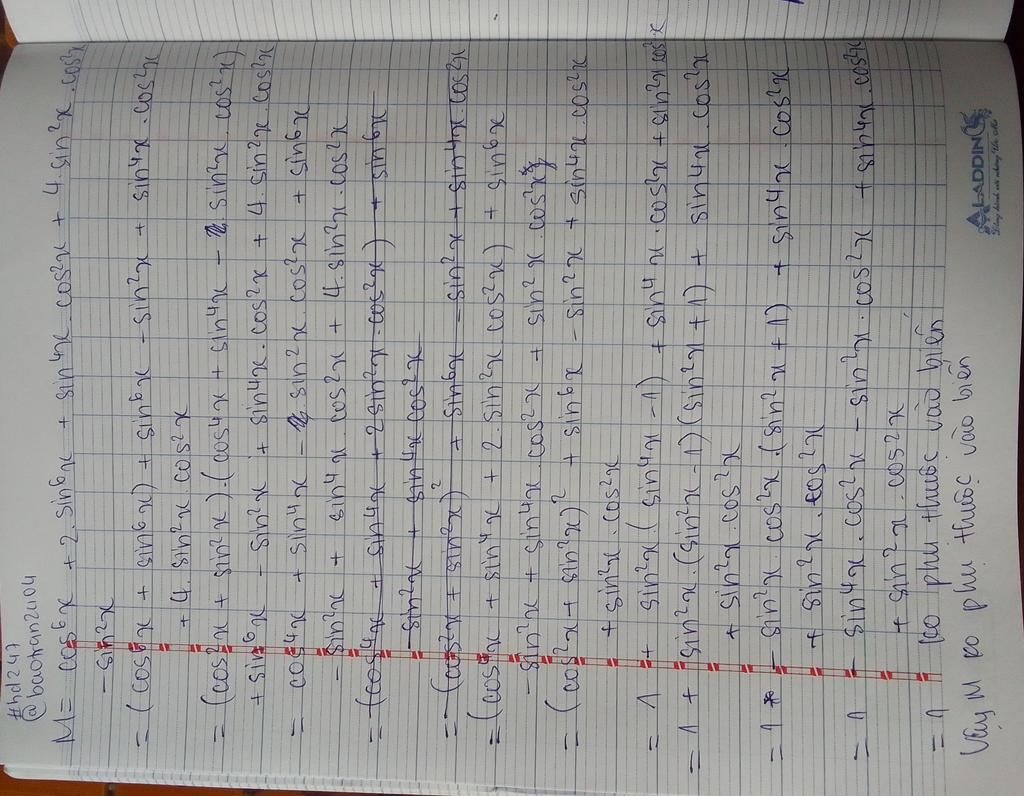 #hd247
@baotran2k04
M = cos⁶x + 2.sin⁶x + sin⁴x.cos²x + 4.sin²x.cos²x
- sin²x
= (cos⁶x + sin⁶x) + sin⁶x - sin²x + sin⁴x.cos²x
+ 4.sin²x.cos²x
= (cos²x + sin²x).(cos⁴x + sin⁴x - sin²x.cos²x)
+ sin⁶x - sin²x + sin⁴x.cos²x + 4.sin²x.cos²x
= cos⁴x + sin⁴x - sin²x.cos²x + sin⁶x
- sin²x + sin⁴x.cos²x + 4.sin²x.cos²x
= (cos⁴x + sin⁴x + 2sin²x.cos²x) + sin⁶x
- sin²x + sin⁴x cos²x
= (cos²x + sin²x)² + sin⁶x - sin²x + sin⁴x cos²x
= (cos⁴x + sin⁴x + 2.sin²x.cos²x) + sin⁶x
- sin²x + sin⁴x.cos²x + sin²x.cos²x
= (cos²x + sin²x)² + sin⁶x - sin²x + sin⁴x.cos²x
+ sin²x.cos²x
= 1 + sin²x.(sin⁴x - 1) + sin⁴x.cos²x + sin²x cos²x
= 1 + sin²x.(sin²x - 1)(sin²x + 1) + sin⁴x.cos²x
+ sin²x.cos²x
= 1 - sin²x.cos²x.(sin²x + 1) + sin⁴x.cos²x
+ sin²x.cos²x
= 1 - sin⁴x.cos²x - sin²x.cos²x + sin⁴x.cos²x
+ sin²x.cos²x
= 1 ko phụ thuộc vào biến
Vậy M ko phụ thuộc vào biến
ALADDIN